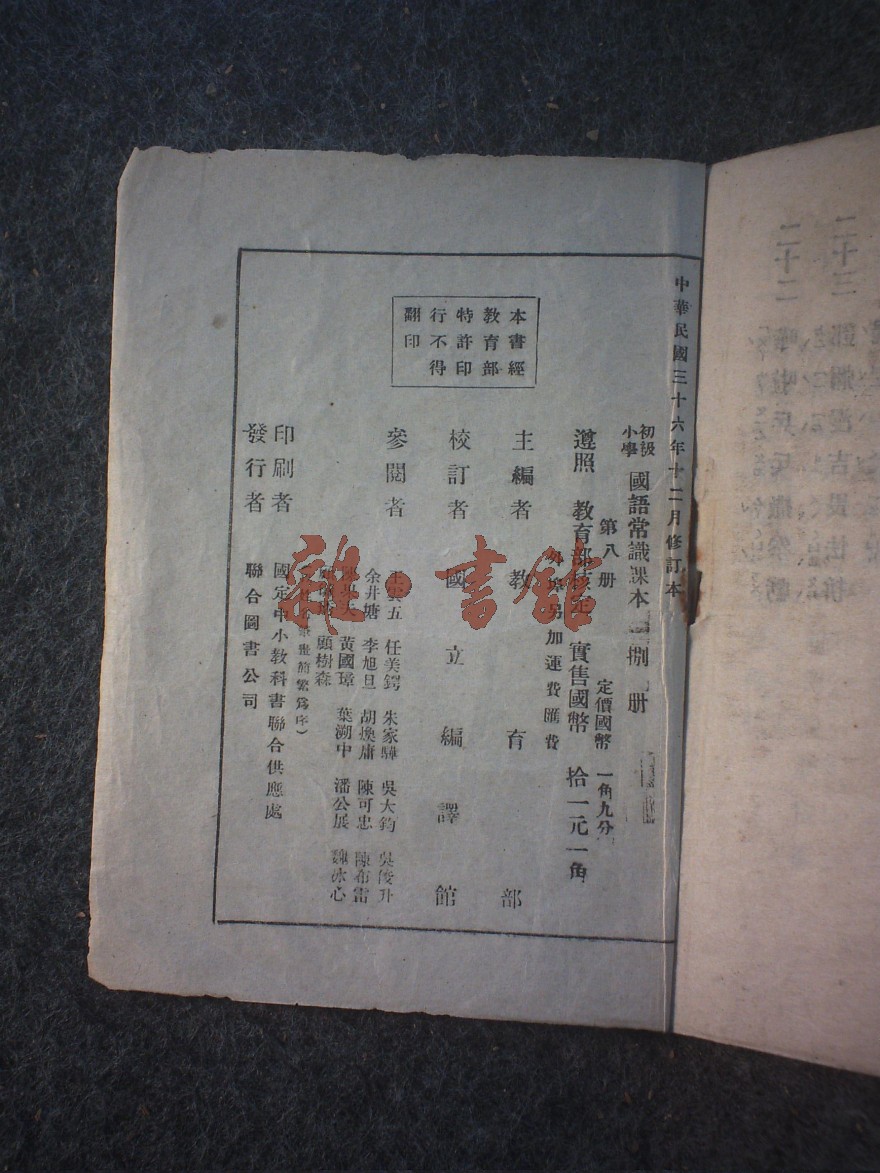 中華民國三十六年十二月修訂本
初級小學 國語常識課本
捌 册
第八册 定價國幣 一角九分
遵照 教育部核定 實售國幣 拾一元一角
另加運費匯費
本書經
教育部
特許印
行不得
翻印
主編者 教育部
校訂者 國立編譯館
參閱者
五 任美鍔 朱家驊 吳大鈞 吳俊升
余井塘 李旭旦 胡煥庸 陳可忠 陳布雷
黃國璋 葉溯中 潘公展 魏冰心
顧樹森
印刷者 國定中小教科書聯合供應處
發行者 聯合圖書公司
雜·書館
二十二
二十三